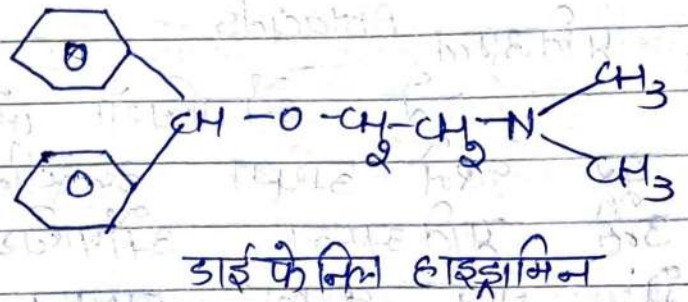 CH - O - CH2 - CH2 - N
CH3
CH3
डाई फेनिल हाइड्रामिन